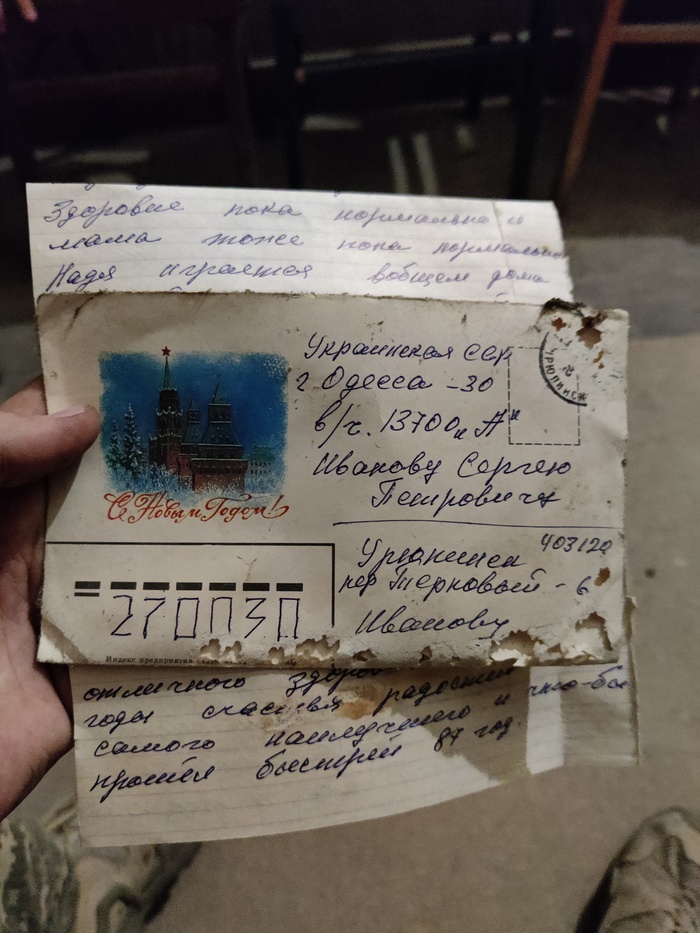 Здоровие пока нормально и
мама тоже пока нормально
Надя играется вобщем дома
Украинская ССР
г Одесса -30
в/ч. 13700 „А"
Иванову Сергею
Петровичу
УРЮПИНСК
С Новым Годом!
403120
Урюпинск
пер Терновый - 6
Иванову
270030
Индекс предприятия
отличного здоров
годы счастья радостных
самого наилучшего и что-бы
прошёл быстрей 87 год.